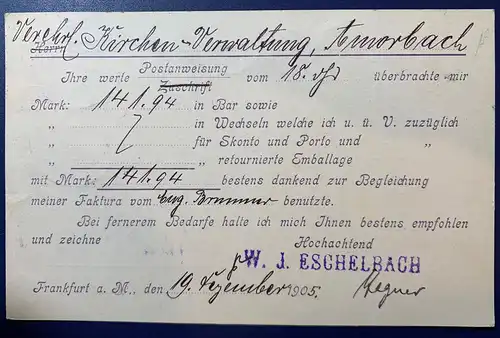 Verehrl. Kirchen-Verwaltung, Amorbach
Herrn
Postanweisung
Ihre werte Zuschrift vom 18. überbrachte mir
Mark: 141.94 in Bar sowie
„ in Wechseln welche ich u. ü. V. zuzüglich
„ für Skonto und Porto und „
„ „ retournierte Emballage
mit Mark: 141.94 bestens dankend zur Begleichung
meiner Faktura vom benutzte.
Bei fernerem Bedarfe halte ich mich Ihnen bestens empfohlen
und zeichne Hochachtend
W. J. ESCHELBACH
Frankfurt a. M., den 19. Dezember 1905.